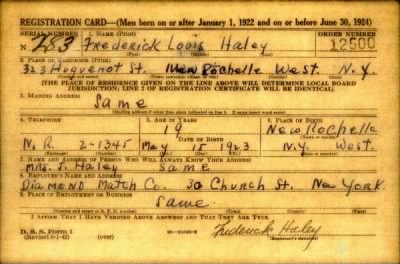 REGISTRATION CARD—(Men born on or after January 1, 1922 and on or before June 30, 1924)
SERIAL NUMBER 1. NAME (Print) ORDER NUMBER
N 283 Frederick Louis Haley 12500
2. PLACE OF RESIDENCE (Print)
323 Huguenot St. New Rochelle West. N.Y.
[THE PLACE OF RESIDENCE GIVEN ON THE LINE ABOVE WILL DETERMINE LOCAL BOARD
JURISDICTION; LINE 2 OF REGISTRATION CERTIFICATE WILL BE IDENTICAL]
3. MAILING ADDRESS
Same
[Mailing address if other than place indicated on line 2. If same insert word same]
4. TELEPHONE 5. AGE IN YEARS 6. PLACE OF BIRTH
19 New Rochelle
DATE OF BIRTH
N.R. 2-1345 May 15 1923 N.Y. West.
7. NAME AND ADDRESS OF PERSON WHO WILL ALWAYS KNOW YOUR ADDRESS
Mrs. J. Haley Same
8. EMPLOYER'S NAME AND ADDRESS
Diamond Match Co. 30 Church St. New York.
9. PLACE OF EMPLOYMENT OR BUSINESS
Same.
I AFFIRM THAT I HAVE VERIFIED ABOVE ANSWERS AND THAT THEY ARE TRUE.
D. S. S. Form 1
(over)
Frederick Haley
(Registrant's signature)